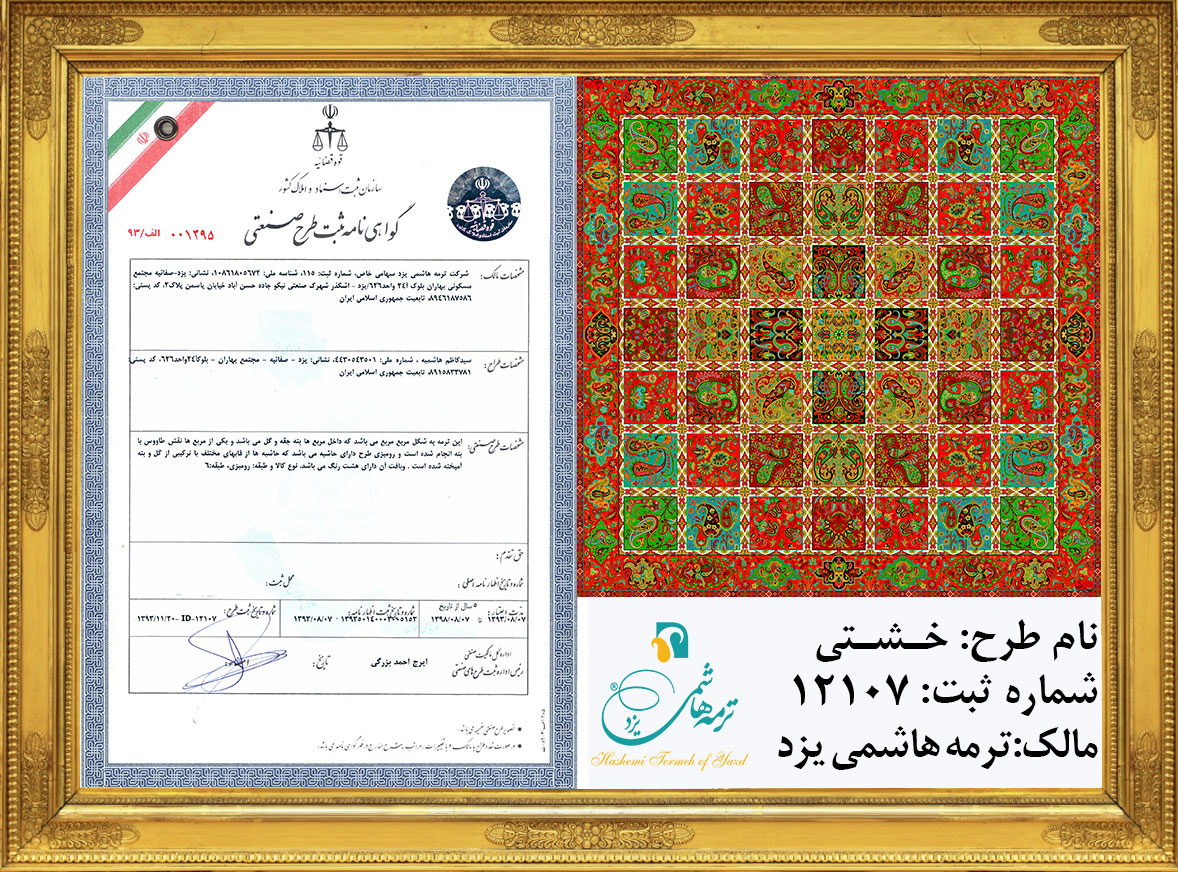 قوه قضائیه
سازمان ثبت اسناد و املاک کشور
گواهی نامه ثبت طرح صنعتی
۰۰۱۲۹۵ الف/۹۳
مشخصات مالک: شرکت ترمه هاشمی یزد سهامی خاص، شماره ثبت: ۱۱۵، شناسه ملی: ۱۰۸۶۱۸۰۵۶۷۲، نشانی: یزد-صفائیه مجتمع
مسکونی بهاران بلوک آ۲۴ واحد۶۲۶/یزد - اشکذر شهرک صنعتی نیکو جاده حسن آباد خیابان یاسمن پلاک۲، کد پستی:
۸۹۴۶۱۸۷۵۸۶، تابعیت جمهوری اسلامی ایران
مشخصات طراح: سیدکاظم هاشمیه ، شماره ملی: ۴۴۳۰۵۴۳۵۰۱، نشانی: یزد - صفائیه - مجتمع بهاران - بلوکآ۲۴واحد۶۲۶، کد پستی:
۸۹۱۵۸۳۳۷۸۱، تابعیت جمهوری اسلامی ایران
مشخصات طرح صنعتی: این ترمه به شکل مربع مربع می باشد که داخل مربع ها بته جقه و گل می باشد و یکی از مربع ها نقش طاووس با
بته انجام شده است و رومیزی طرح دارای حاشیه می باشد که حاشیه ها از قابهای مختلف با ترکیبی از گل و بته
آمیخته شده است . وبافت آن دارای هشت رنگ می باشد. نوع کالا و طبقه: رومیزی، طبقه:۶
حق تقدم:
شماره و تاریخ اظهار نامه اصلی: محل ثبت:
مدت اعتبار: ۵ سال از تاریخ شماره و تاریخ ثبت اظهار نامه: شماره و تاریخ ثبت طرح:
۱۳۹۳/۰۸/۰۷ تا ۱۳۹۸/۰۸/۰۷ ۱۳۹۳۵۰۱۴۰۰۰۳۰۰۵۱۵۳ - ۱۳۹۳/۰۸/۰۷ ۱۳۹۳/۱۱/۲۰- ID-۱۲۱۰۷
اداره کل مالکیت صنعتی
رئیس اداره ثبت طرح های صنعتی ایرج احمد بزرگی تاریخ: امضاء:
تصویر طرح صنعتی ضمیمه می باشد.
نام طرح: خشتی
شماره ثبت: ۱۲۱۰۷
مالک:ترمه هاشمی یزد
ترمه هاشمی
یزد
®
Hashemi Termeh of Yazd